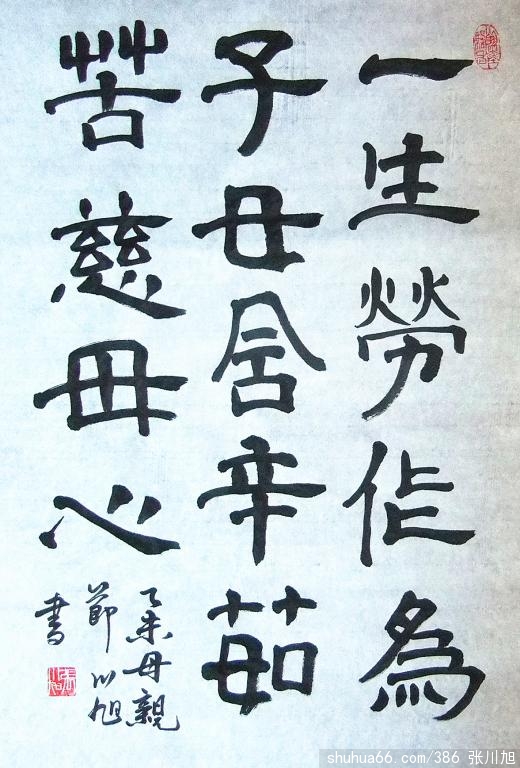 一生勞作為
子女含辛茹
苦慈母心
乙未母親
節川旭
書
shuhua66.com/386 张川旭